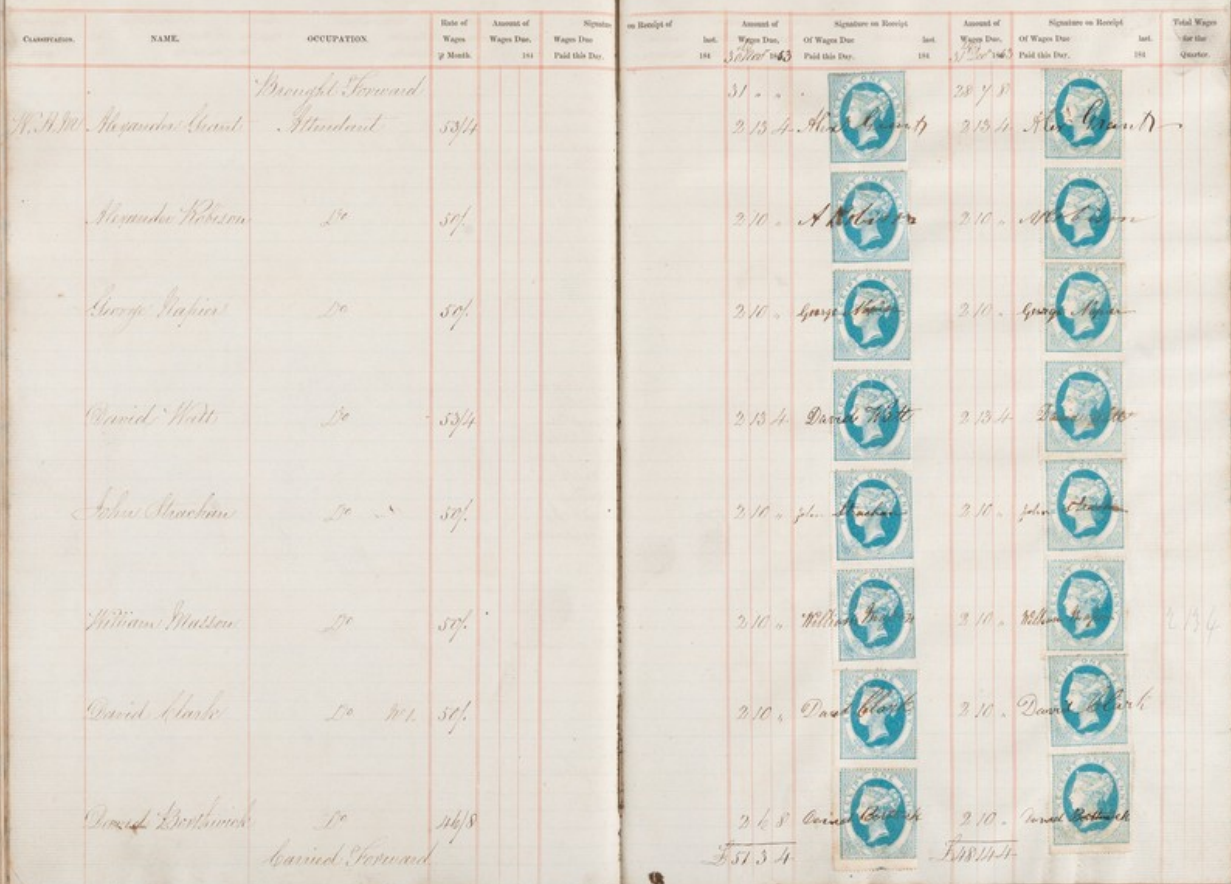 CLASSIFICATION. NAME. OCCUPATION. Rate of Wages ⅌ Month. Amount of Wages Due. 184 Wages Due Paid this Day. on Receipt of last. 184 Amount of Wages Due, 30 Nov 1853 Signature on Receipt Of Wages Due last. Paid this Day. 184 Amount of Wages Due, 31 Dec 1853 Signature on Receipt Of Wages Due last. Paid this Day. 184 Total Wages for the Quarter.
Brought Forward 31 " " 28 7 8
Alexander Grant Attendant 53/4 2 13 4 Alexr Grant 2 13 4 Alex Grant
Alexander Robison Do 50/. 2 10 " A Robison 2 10 " A Robison
George Napier Do 50/. 2 10 " George Napier 2 10 " George Napier
David Watt Do 53/4 2 13 4 David Watt 2 13 4 David Watt
John Strachan Do 50/. 2 10 " John Strachan 2 10 " John Strachan
William Musson Do 50/. 2 10 " William 2 10 " William 2 13 4
David Clark Do No 1. 50/. 2 10 " David Clark 2 10 " David Clark
David Borthwick Do 46/8 2 6 8 David Borthwick 2 10 " David Borthwick
Carried Forward £51 3 4 £48 14 4